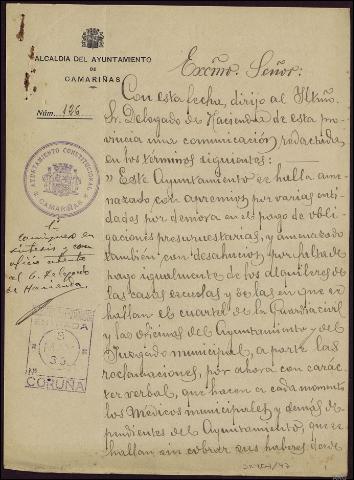 ALCALDIA DEL AYUNTAMIENTO
DE
CAMARIÑAS
Núm. 126
AYUNTAMIENTO CONSTITUCIONAL
CAMARIÑAS
oficio
al
de Hacienda.
ENTRADA
CORUÑA
Excmo. Señor:
Con esta fecha, dirijo al Iltmo.
Sr. Delegado de Hacienda de esta pro
vincia una comunicación redactada
en los términos siguientes:
"Este Ayuntamiento se halla ame
nazado con apremios por varias enti
dades por demora en el pago de obli
gaciones presupuestarias, y amenazado
también con desahucios por falta de
pago igualmente de los alquileres
de las casas escuelas y de las en que se
hallan el cuartel de la Guardia civil
y las oficinas del Ayuntamiento y del
Juzgado municipal, a parte las
reclamaciones, por ahora con carác
ter verbal, que hacen a cada momento
los Médicos municipales y demás de
pendientes del Ayuntamiento, que se
hallan sin cobrar sus haberes desde